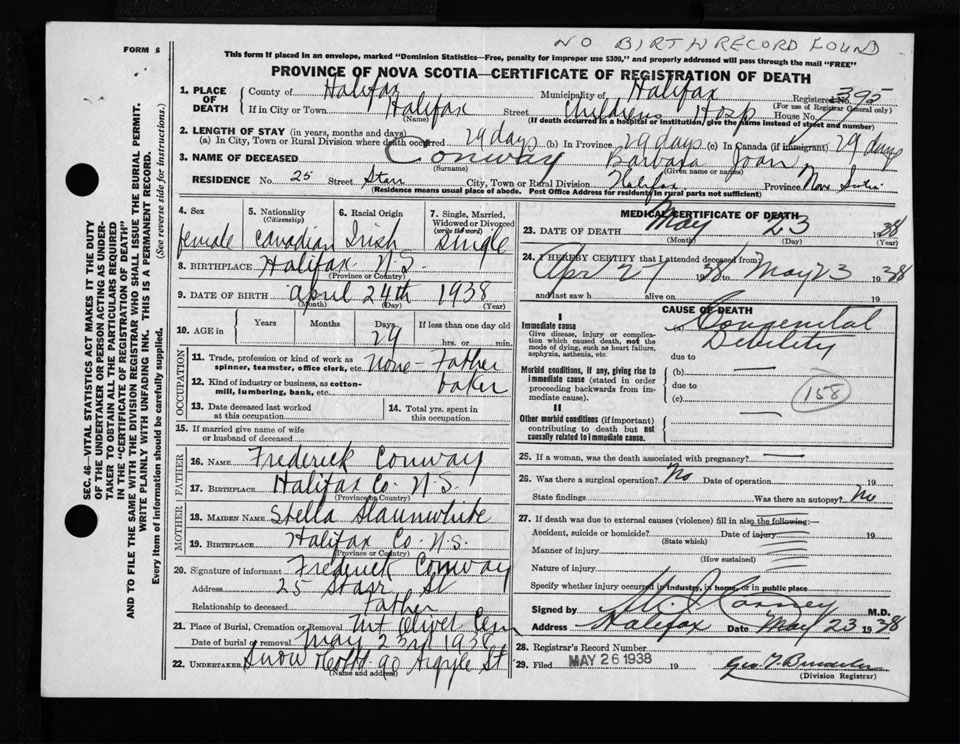 NO BIRTH RECORD FOUND
FORM 6
This form if placed in an envelope, marked "Dominion Statistics—Free, penalty for improper use $300," and properly addressed will pass through the mail "FREE"
PROVINCE OF NOVA SCOTIA—CERTIFICATE OF REGISTRATION OF DEATH
1. PLACE OF DEATH County of Halifax Municipality of Halifax Registered No. 395
(For use of Registrar General only)
If in City or Town Halifax Street Childrens Hosp House No.
(Name) (If death occurred in a hospital or institution, give the name instead of street and number)
2. LENGTH OF STAY (in years, months and days)
(a) In City, Town or Rural Division where death occurred 29 days (b) In Province 29 days (c) In Canada (if immigrant) 29 days
3. NAME OF DECEASED Conway Barbara Joan
(Surname) (Given name or names)
RESIDENCE No. 25 Street Starr City, Town or Rural Division Halifax Province Nova Scotia
(Residence means usual place of abode. Post Office Address for Residents in rural parts not sufficient)
4. Sex female
5. Nationality (Citizenship) Canadian
6. Racial Origin Irish
7. Single, Married, Widowed or Divorced (write the word) Single
8. BIRTHPLACE Halifax N.S.
(Province or Country)
9. DATE OF BIRTH April 24th 1938
(Month) (Day) (Year)
10. AGE in Years Months Days 29 If less than one day old hrs. or min.
OCCUPATION
11. Trade, profession or kind of work as spinner, teamster, office clerk, etc. None - Father
12. Kind of industry or business, as cotton-mill, lumbering, bank, etc. baker
13. Date deceased last worked at this occupation
14. Total yrs. spent in this occupation
15. If married give name of wife or husband of deceased
FATHER
16. NAME Frederick Conway
17. BIRTHPLACE Halifax Co. N.S.
(Province or Country)
MOTHER
18. MAIDEN NAME Stella Slaunwhite
19. BIRTHPLACE Halifax Co. N.S.
(Province or Country)
20. Signature of informant Frederick Conway
Address 25 Starr St
Relationship to deceased Father
21. Place of Burial, Cremation or Removal Mt Olivet Cem
Date of burial or removal May 23rd 1938
22. UNDERTAKER Snow 90 Argyle St
(Name and address)
MEDICAL CERTIFICATE OF DEATH
23. DATE OF DEATH May 23 1938
(Month) (Day) (Year)
24. I HEREBY CERTIFY that I attended deceased from:
Apr 27 1938 to May 23 1938
and last saw h alive on 19
CAUSE OF DEATH
I
Immediate cause
Give disease, injury or complication which caused death, not the mode of dying, such as heart failure, asphyxia, asthenia, etc.
(a) Congenital Debility
due to
Morbid conditions, if any, giving rise to immediate cause (stated in order proceeding backwards from immediate cause).
(b)
due to
(c)
158
II
Other morbid conditions (if important) contributing to death but not causally related to immediate cause.
25. If a woman, was the death associated with pregnancy?
26. Was there a surgical operation? No Date of operation 19
State findings Was there an autopsy? No
27. If death was due to external causes (violence) fill in also the following:—
Accident, suicide or homicide? Date of injury 19
(State which)
Manner of injury
(How sustained)
Nature of injury
Specify whether injury occurred in industry, in home, or in public place
Signed by M.D.
Address Halifax Date May 23 1938
28. Registrar's Record Number
29. Filed MAY 26 1938 19
(Division Registrar)
SEC. 46—VITAL STATISTICS ACT MAKES IT THE DUTY OF THE UNDERTAKER OR PERSON ACTING AS UNDERTAKER TO OBTAIN ALL THE PARTICULARS REQUIRED IN THE "CERTIFICATE OF REGISTRATION OF DEATH" AND TO FILE THE SAME WITH THE DIVISION REGISTRAR WHO SHALL ISSUE THE BURIAL PERMIT.
WRITE PLAINLY WITH UNFADING INK. THIS IS A PERMANENT RECORD.
Every item of information should be carefully supplied. (See reverse side for instructions.)